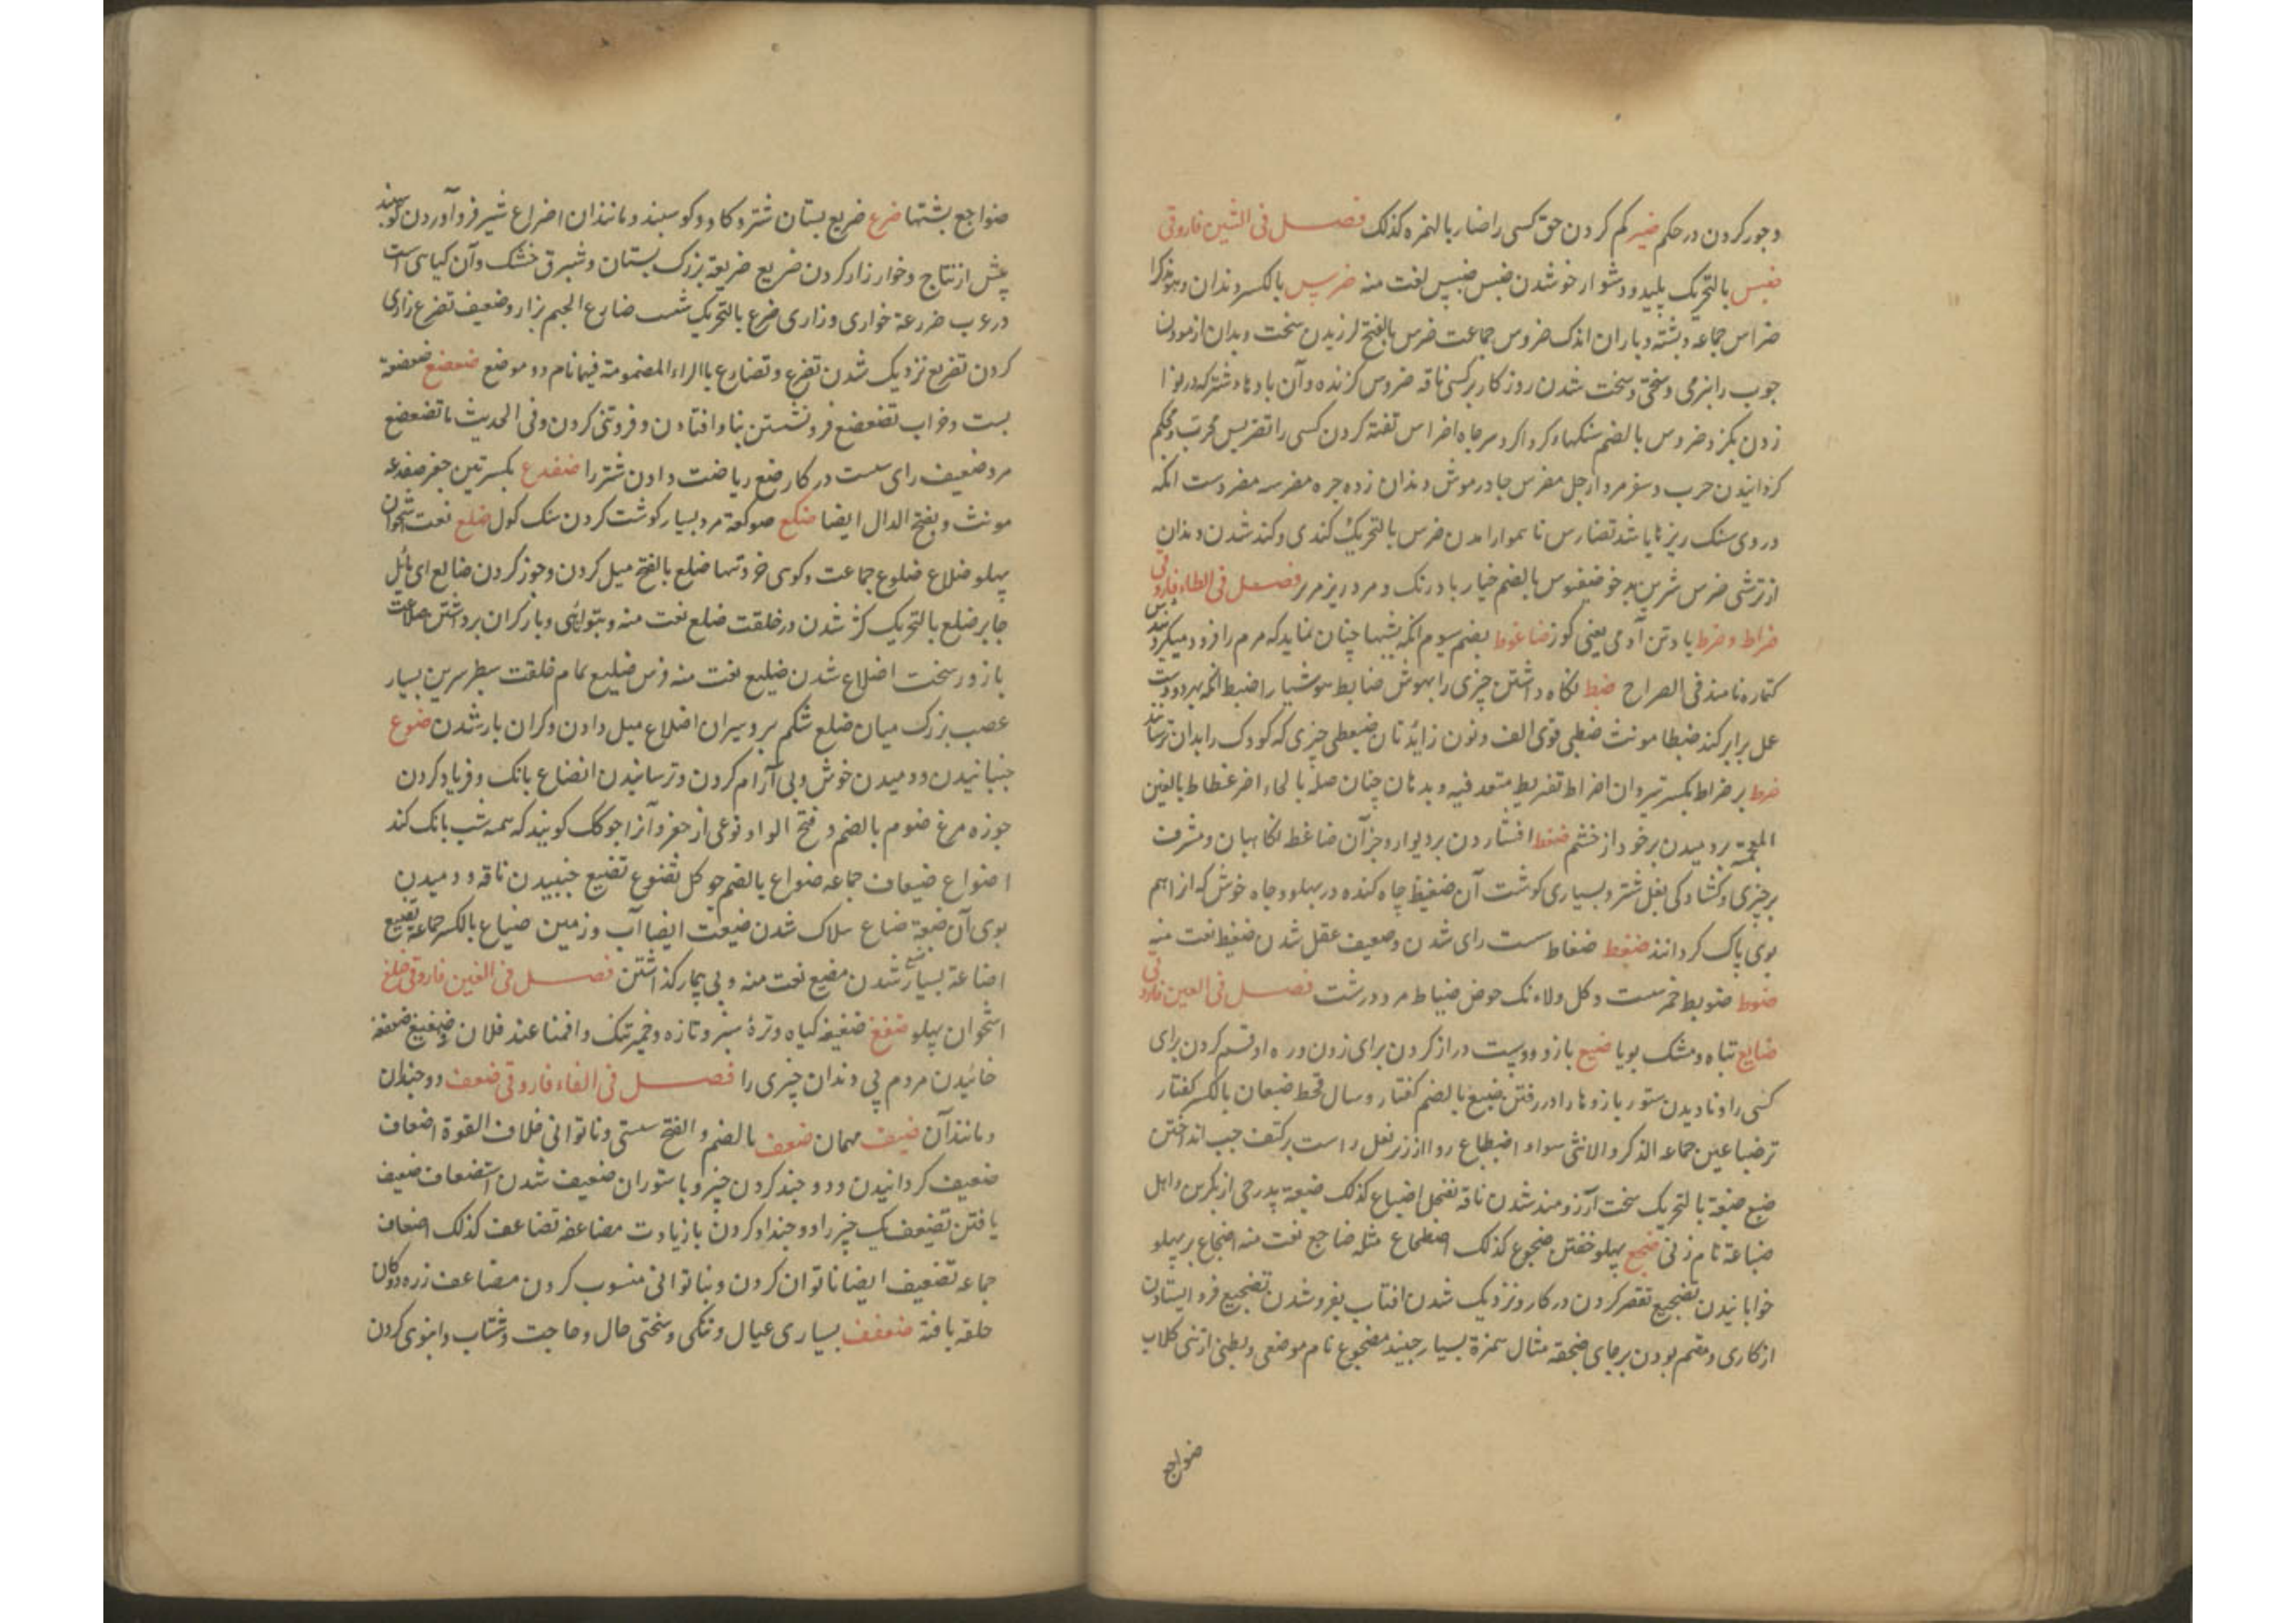 وجور کردن در حکم ضیر کم کردن حق کسی را ضار بالهمزه کذلک فصل فی السّین فاروقی
ضبس بالتحریک پلید و دشوار خو شدن ضبس ضبیس لغت منه ضرس بالکسر دندان و
ضراس جماعه و پشته و باران اندک ضروس جماعت ضرس بالفتح لرزیدن سخت و بدان ازمودن
چوب را بنرمی و سختی و سخت شدن روزکار بر کسی ناقه ضروس کزنده و آن باد
زدن بکز و ضروس بالضم سنکها و کرداکرد سر چاه اضراس تفته کردن کسی را تضریس مجرب و محکم
کردانیدن حرب و سفر مرد را رجل مضرس جادر موش دندان زده حره مضرسه مضروست انکه
در وی سنک ریزها باشد تضارس ناهموار امدن ضرس بالتحریک کندی و کند شدن دندان
از ترشی ضرس شرس بد خو ضغبوس بالضم خیار بادرنک و مرد ریزمریز فصل فی الطاء فاروقی
ضراط و ضرط باد تن آدمی یعنی کوز ضاغوط بضم سیوم انکه بشبها چنان نماید که مردم را فرود میکیرد
کتماره نامند فی الصراح ضبط نکاه داشتن چیزی را بهوش ضابط هوشیار اضبط انکه بهر دو دست
عمل برابر کند ضبطا مونث ضبطی قوی الف و نون زایدتان ضبغطی چیزی که کودک را بدان ترسانند
ضرط ضراط بکسر تیز دادن اضراط تضریط متعد فیه و بدهان چنان صله بالحاء اضرغطاط بالغین
المعجمة بر دمیدن بر خود از خشم ضغط افشاردن بر دیوار و جز آن ضاغط نکاهبان و مشرف
بر چیزی و کشادکی بغل شتر و بسیاری کوشت آن ضغیط چاه کنده در پهلو و چاه خوش که از اهم
بوی پاک کردانند ضفط ضفاط سست رای شدن و ضعیف عقل شدن ضفیط نعت منه
ضوط ضویط خمر سست و کل ولاء تک حوض ضیاط مرد درشت فصل فی العین فاروقی
ضایع تباه و مشک بویا ضبع بازو و دست دراز کردن برای زدن و راه اد قسم کردن برای
کسی را و نادیدن ستور بازوها را در رفتن ضبع بالضم کفتار و سال قحط ضبعان بالکسر کفتار
نر ضباعین جماعه الذکر و الانثی سواء اضطباع ردا از زیر بغل راست بر کتف چپ انداختن
ضبع ضبعة بالتحریک سخت آرزومند شدن ناقه بفحل اضباع کذلک ضبیعة پدر حی از بکر بن وایل
ضباعة نام زنی ضجع پهلو خفتن ضجوع کذلک اضطجاع مثله ضاجع نعت منه اضجاع بر پهلو
خوابانیدن تضجیع تقصیر کردن در کار و نزدیک شدن افتاب بفرو شدن تضجیع فرو ایستادن
از کاری و مقیم بودن بر جای ضجعة مثال همزة بسیار جسپنده مضجوع نام موضعی و بطنی از بنی کلاب
ضواجع
ضواجع پشتها ضرع ضریع پستان شتر و کاو و کوسپند و مانندان اضراع شیر فرو آوردن کوسپند
پیش از نتاج و خوار زار کردن ضریع ضریعة بزرک پستان و شبرق خشک و آن کیاهی است
در عرب ضرعة خواری و زاری ضرع بالتحریک ضارع الجسم نزار و ضعیف تضرع زاری
کردن تضریع نزدیک شدن تضرع و تضارع باالراء المضمومة فیها نام دو موضع ضعضع ضعضعة
پست و خراب تضعضع فرو نشستن بنا و افتادن و فروتنی کردن و فی الحدیث ما تضعضع
مرد ضعیف رای سست در کار ضع ریاضت دادن شتر را ضفدع بکسرتین چغز ضفدعه
مونث و بفتح الدال ایضا ضکع ضوکعة مرد بسیار کوشت کردن سنک کول ضلع نعت استخوان
پهلو ضلاع ضلوع جماعت و کوهی خرد تنها ضلع بالفتح میل کردن و جور کردن ضالع ای مایل
جابر ضلع بالتحریک کژ شدن در خلقت ضلع نعت منه و بتوانایی و بار کران برداشتن ضلاعت
بازور سخت اضلاع شدن ضلیع نعت منه فرس ضلیع تمام خلقت سطبر سرین بسیار
عصب بزرک میان ضلع شکم پر و سیران اضلاع میل دادن و کران بار شدن ضوع
جنبانیدن و دمیدن خوش و بی آرام کردن و ترسانیدن انضاع بانک و فریاد کردن
جوزه مرغ ضوع بالضم و فتح الواو نوعی از جغز و آنرا جوکک کویند که همه شب بانک کند
اضواع ضیعان جماعه ضواع بالضم جو کل تضوع تضیع جنبیدن ناقه و دمیدن
بوی آن ضیعة ضاع هلاک شدن ضیعت ایضا آب و زمین ضیاع بالکسر جماعة تضییع
اضاعة بسیار ضیع شدن مضیع نعت منه و بی تیمار کذاشتن فصل فی الغین فاروقی ضلغ
استخوان پهلو ضغغ ضغیغه کیاه و ترهٔ سبز و تازه و خمیر تنک و اقمنا عند فلان ضغیغ ضغضغة
خائیدن مردم بی دندان چیزی را فصل فی الفاء فاروقی ضعف دو چندان
و مانند آن ضیف مهمان ضعف بالضم و الفتح سستی و ناتوانی خلاف القوة اضعاف
ضعیف کردانیدن و دو چند کردن چیز و با ستوران ضعیف شدن استضعاف ضعیف
یافتن تضعیف یک چیز را دو چندان کردن یا زیادت مضاعفه تضاعف کذلک اضعاف
جماعه تضعیف ایضا ناتوان کردن و بناتوانی منسوب کردن مضاعف زره دوکان
حلقه بافته ضفف بسیاری عیال و تنکی و سختی حال و حاجت و شتاب و انبوهی کردن